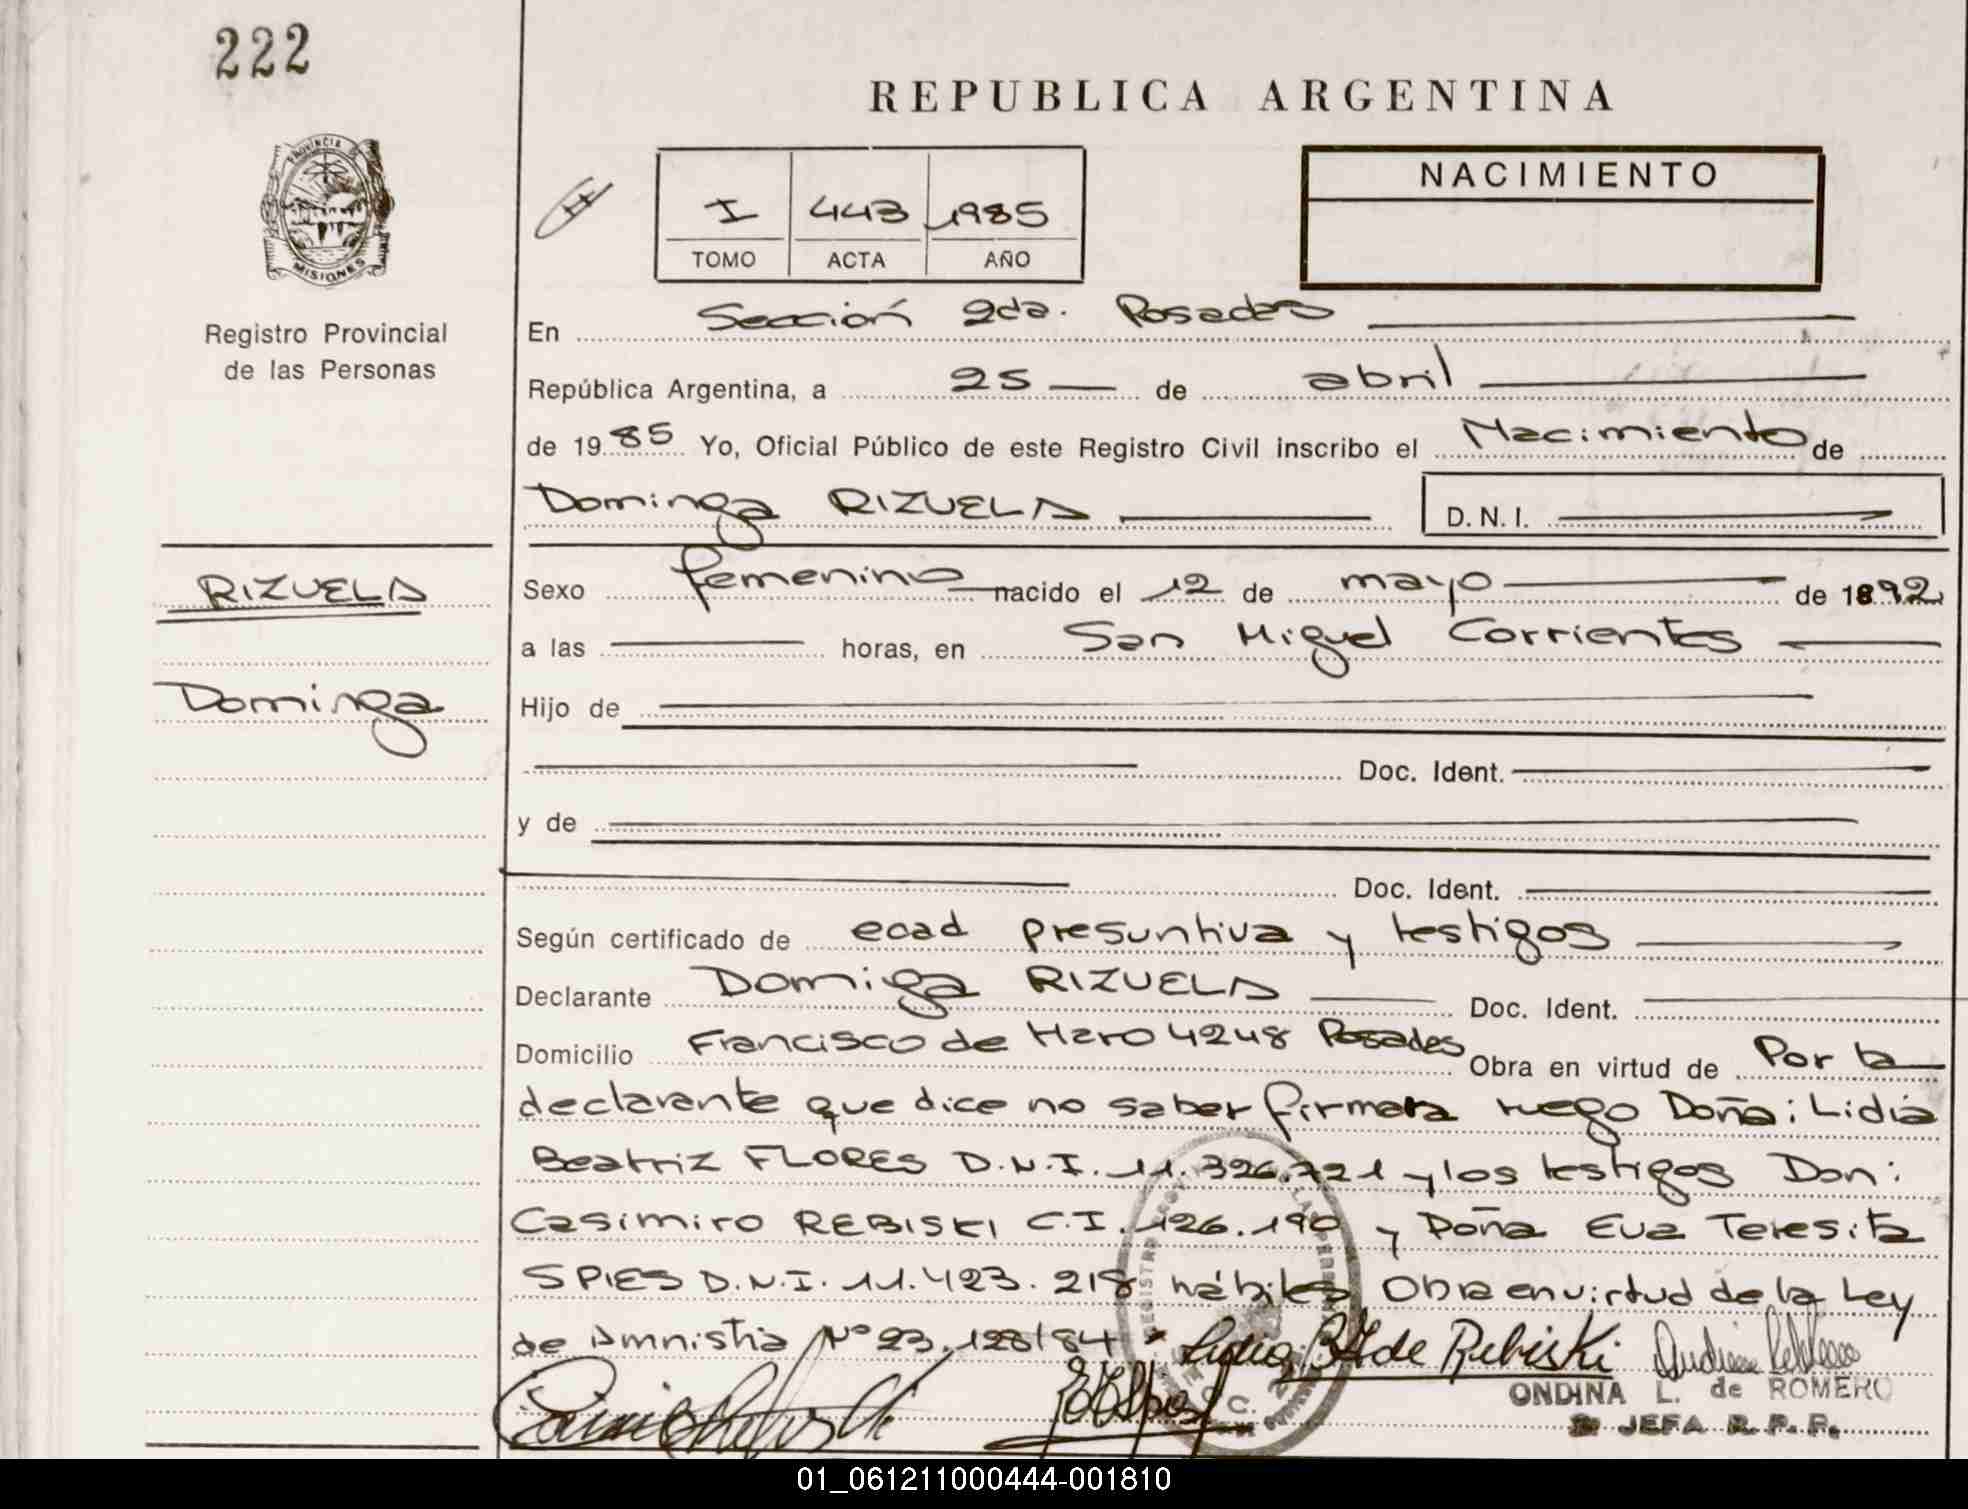 222
REPUBLICA ARGENTINA
PROVINCIA DE
MISIONES
I 443 1985
TOMO ACTA AÑO
NACIMIENTO
Registro Provincial
de las Personas
En Sección 2da. Posadas
República Argentina, a 25 de abril
de 1985 Yo, Oficial Público de este Registro Civil inscribo el Nacimiento de
Dominga RIZUELA D.N.I.
RIZUELA
Dominga
Sexo femenino nacido el 12 de mayo de 1892
a las horas, en San Miguel Corrientes
Hijo de
Doc. Ident.
y de
Doc. Ident.
Según certificado de edad presuntiva y testigos
Declarante Dominga RIZUELA Doc. Ident.
Domicilio Francisco de Haro 4248 Posadas Obra en virtud de Por la
declarante que dice no saber firmar a ruego Doña: Lidia
Beatriz FLORES D.N.I. 11.326.721 y los testigos Don:
Casimiro REBISKI C.I. 126.190 y Doña Eva Teresita
SPIES D.N.I. 11.423.218 hábiles Obra en virtud de la Ley
de Amnistia Nº 23.128/84
Lidia B. F. de Rebiski
ONDINA L. de ROMERO
JEFA R. P. P.
01_061211000444-001810